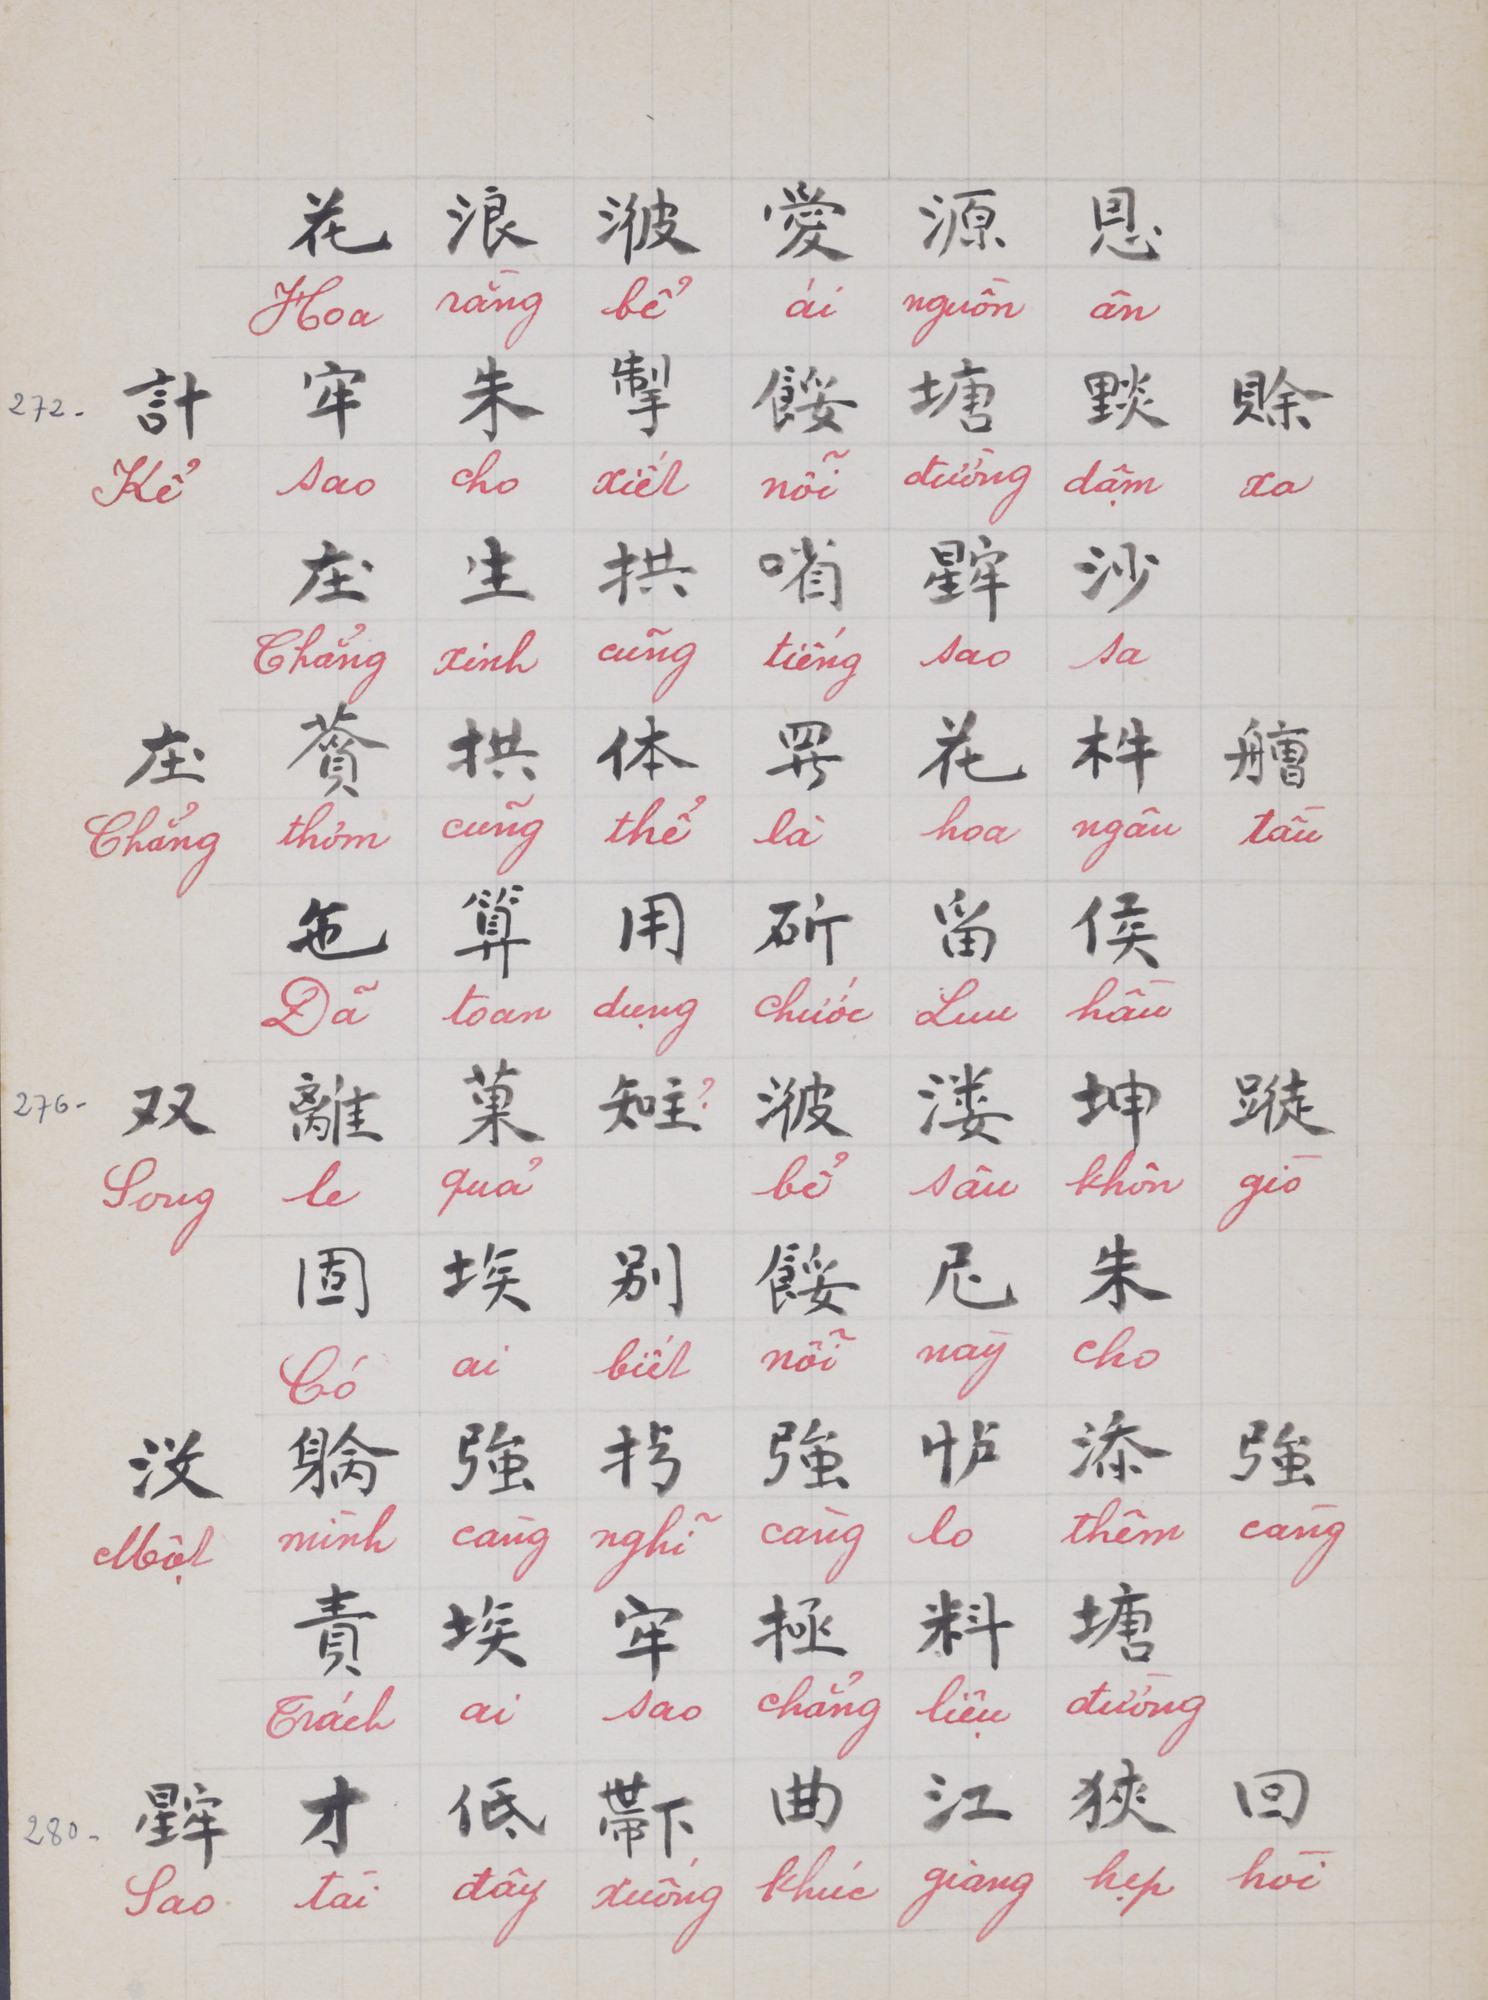 花 浪 㴜 愛 源 恩
Hoa rằng bể ái nguồn ân
272- 計 牢 朱 掣 餒 塘 䠄 賖
Kể sao cho xiết nỗi đường dậm xa
庄 生 拱 哨 𣋀 沙
Chẳng xinh cũng tiếng sao sa
庄 薋 拱 体 羅 花 杵 艚
Chẳng thơm cũng thể là hoa ngâu tầu
㐌 算 用 斫 留 侯
Đã toan dụng chước Lưu hầu
276- 双 離 菓 ? 㴜 溇 坤 蹝
Song le quả bể sâu khôn giò
固 埃 别 餒 尼 朱
Có ai biết nỗi nầy cho
没 𨉟 強 𢪀 強 㤕 添 強
Một mình càng nghĩ càng lo thêm càng
責 埃 牢 拯 料 塘
Trách ai sao chẳng liệu đường
280- 𣋀 才 低 𨑜 曲 江 狹 回
Sao tài đây xuống khúc giang hẹp hòi